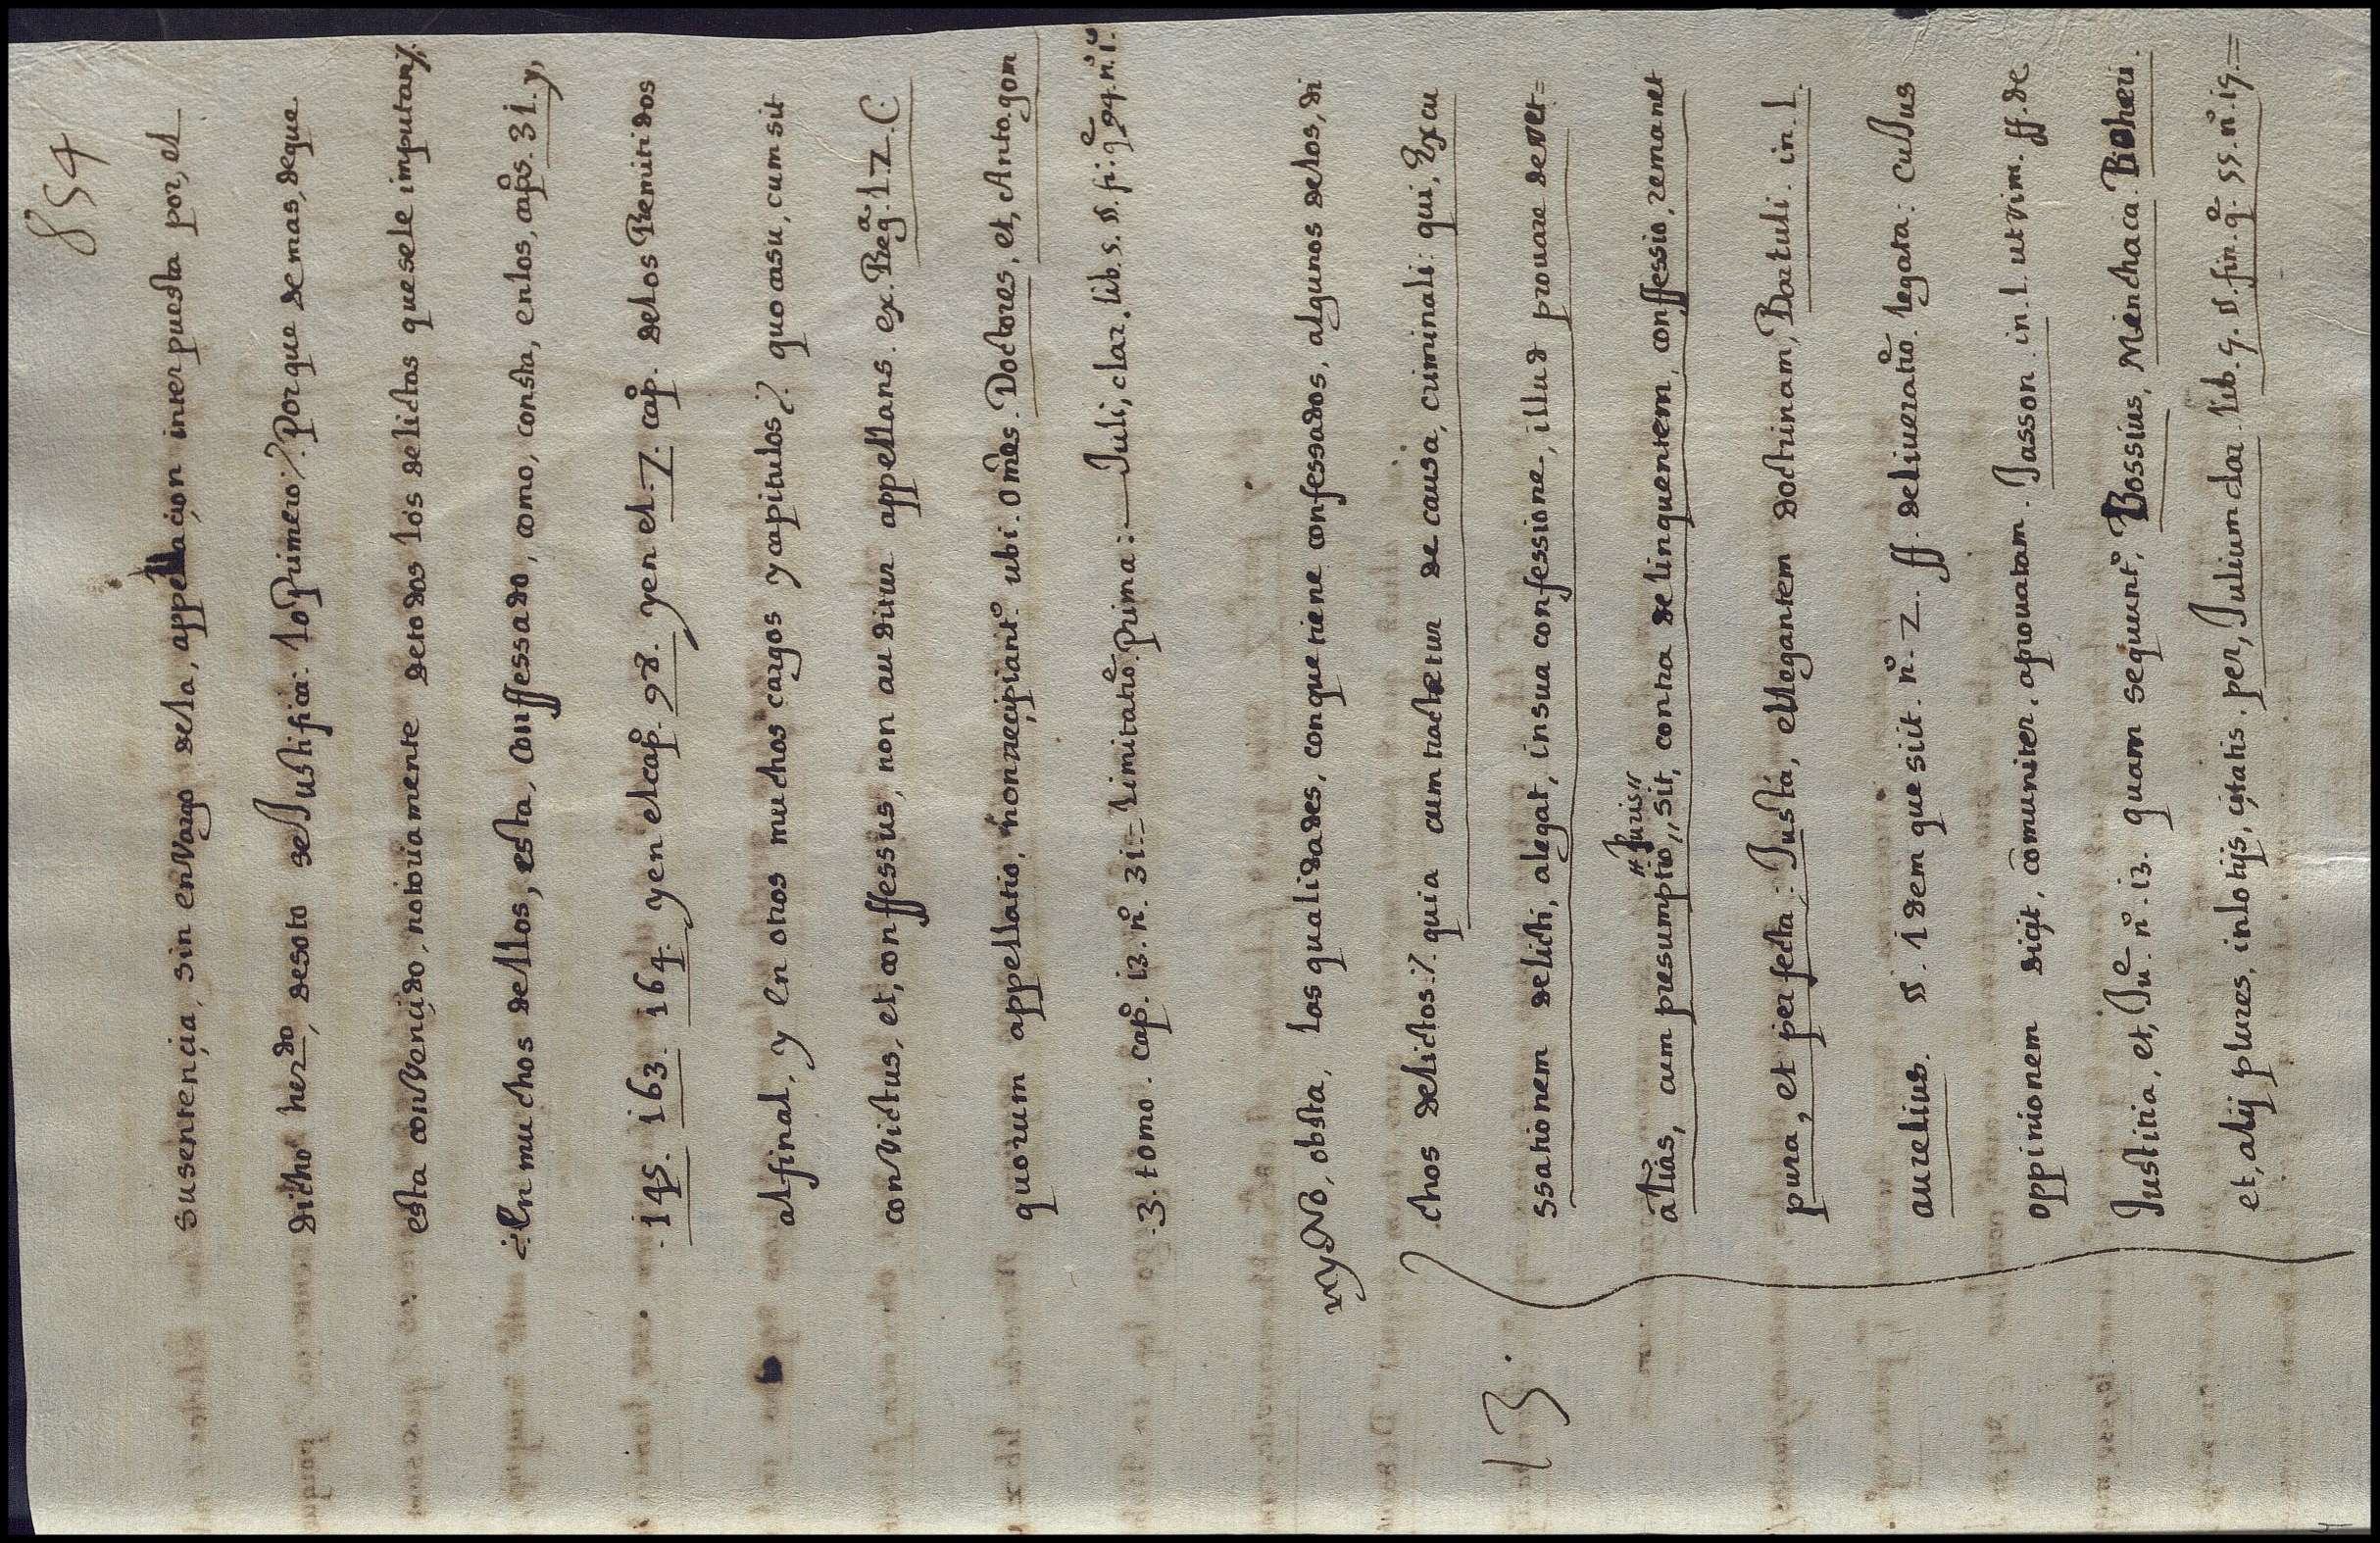 854
susentençia, sin enVargo dela, appellaçion interpuesta por, el
dicho herdo, desoto seJustifica: lo Primero ·/. Porque demas, deque
esta conVençido, notoriamente detodos los delictos quesele imputan ·/.
En muchos dellos, esta, Conffessado, como, consta, enlos, capos. 31. y,
.145. 163. 164. yen elcapo. 98. yen el. 7. cap. delos Remitidos
alfinal, y En otros muchos cargos y capitulos ·/. quo casu, cum sit
conVictus, et, conffessus, non auditur appellans. ex. Rega. 1. 2. C.
quorum appellatio, nonrreçipiant. ubi. omēs. Doctores, et, Anto. gom
.3. tomo. capo. 13. no. 31 = limitatioe. Prima: — Juli, clar. lib. 5. §. fi. qe 94. no. 1.
y No, obsta, las qualidades, conquetiene confessados, algunos delos, di
chos delictos ·/. quia cumtractetur de causa, criminali: qui, Excu
ssationem delicti, alegat, insua confessione, illud provare devet =
"Juris"
alias, cum presumptio,, sit, contra delinquentem, conffessio, remanet
pura, et perfecta: Justa, ellegantem doctrinam, Bartuli. in. l.
aurelius. §. idem quesiit. no. 2. ff. deliveratioe. legata: cuJus
oppinionem diçit, cōmuniter. aprovatam. Jasson. in. l. ut vim. ff. de
Justitia, et, Jure. no. 13. quam sequnto. Bossius, Menchaca. Boheri.
et, alij plures, inlotijs, çitatis. per, Julium clar. lib. 5. §. fin. qe. 55. no. 19. =
13.